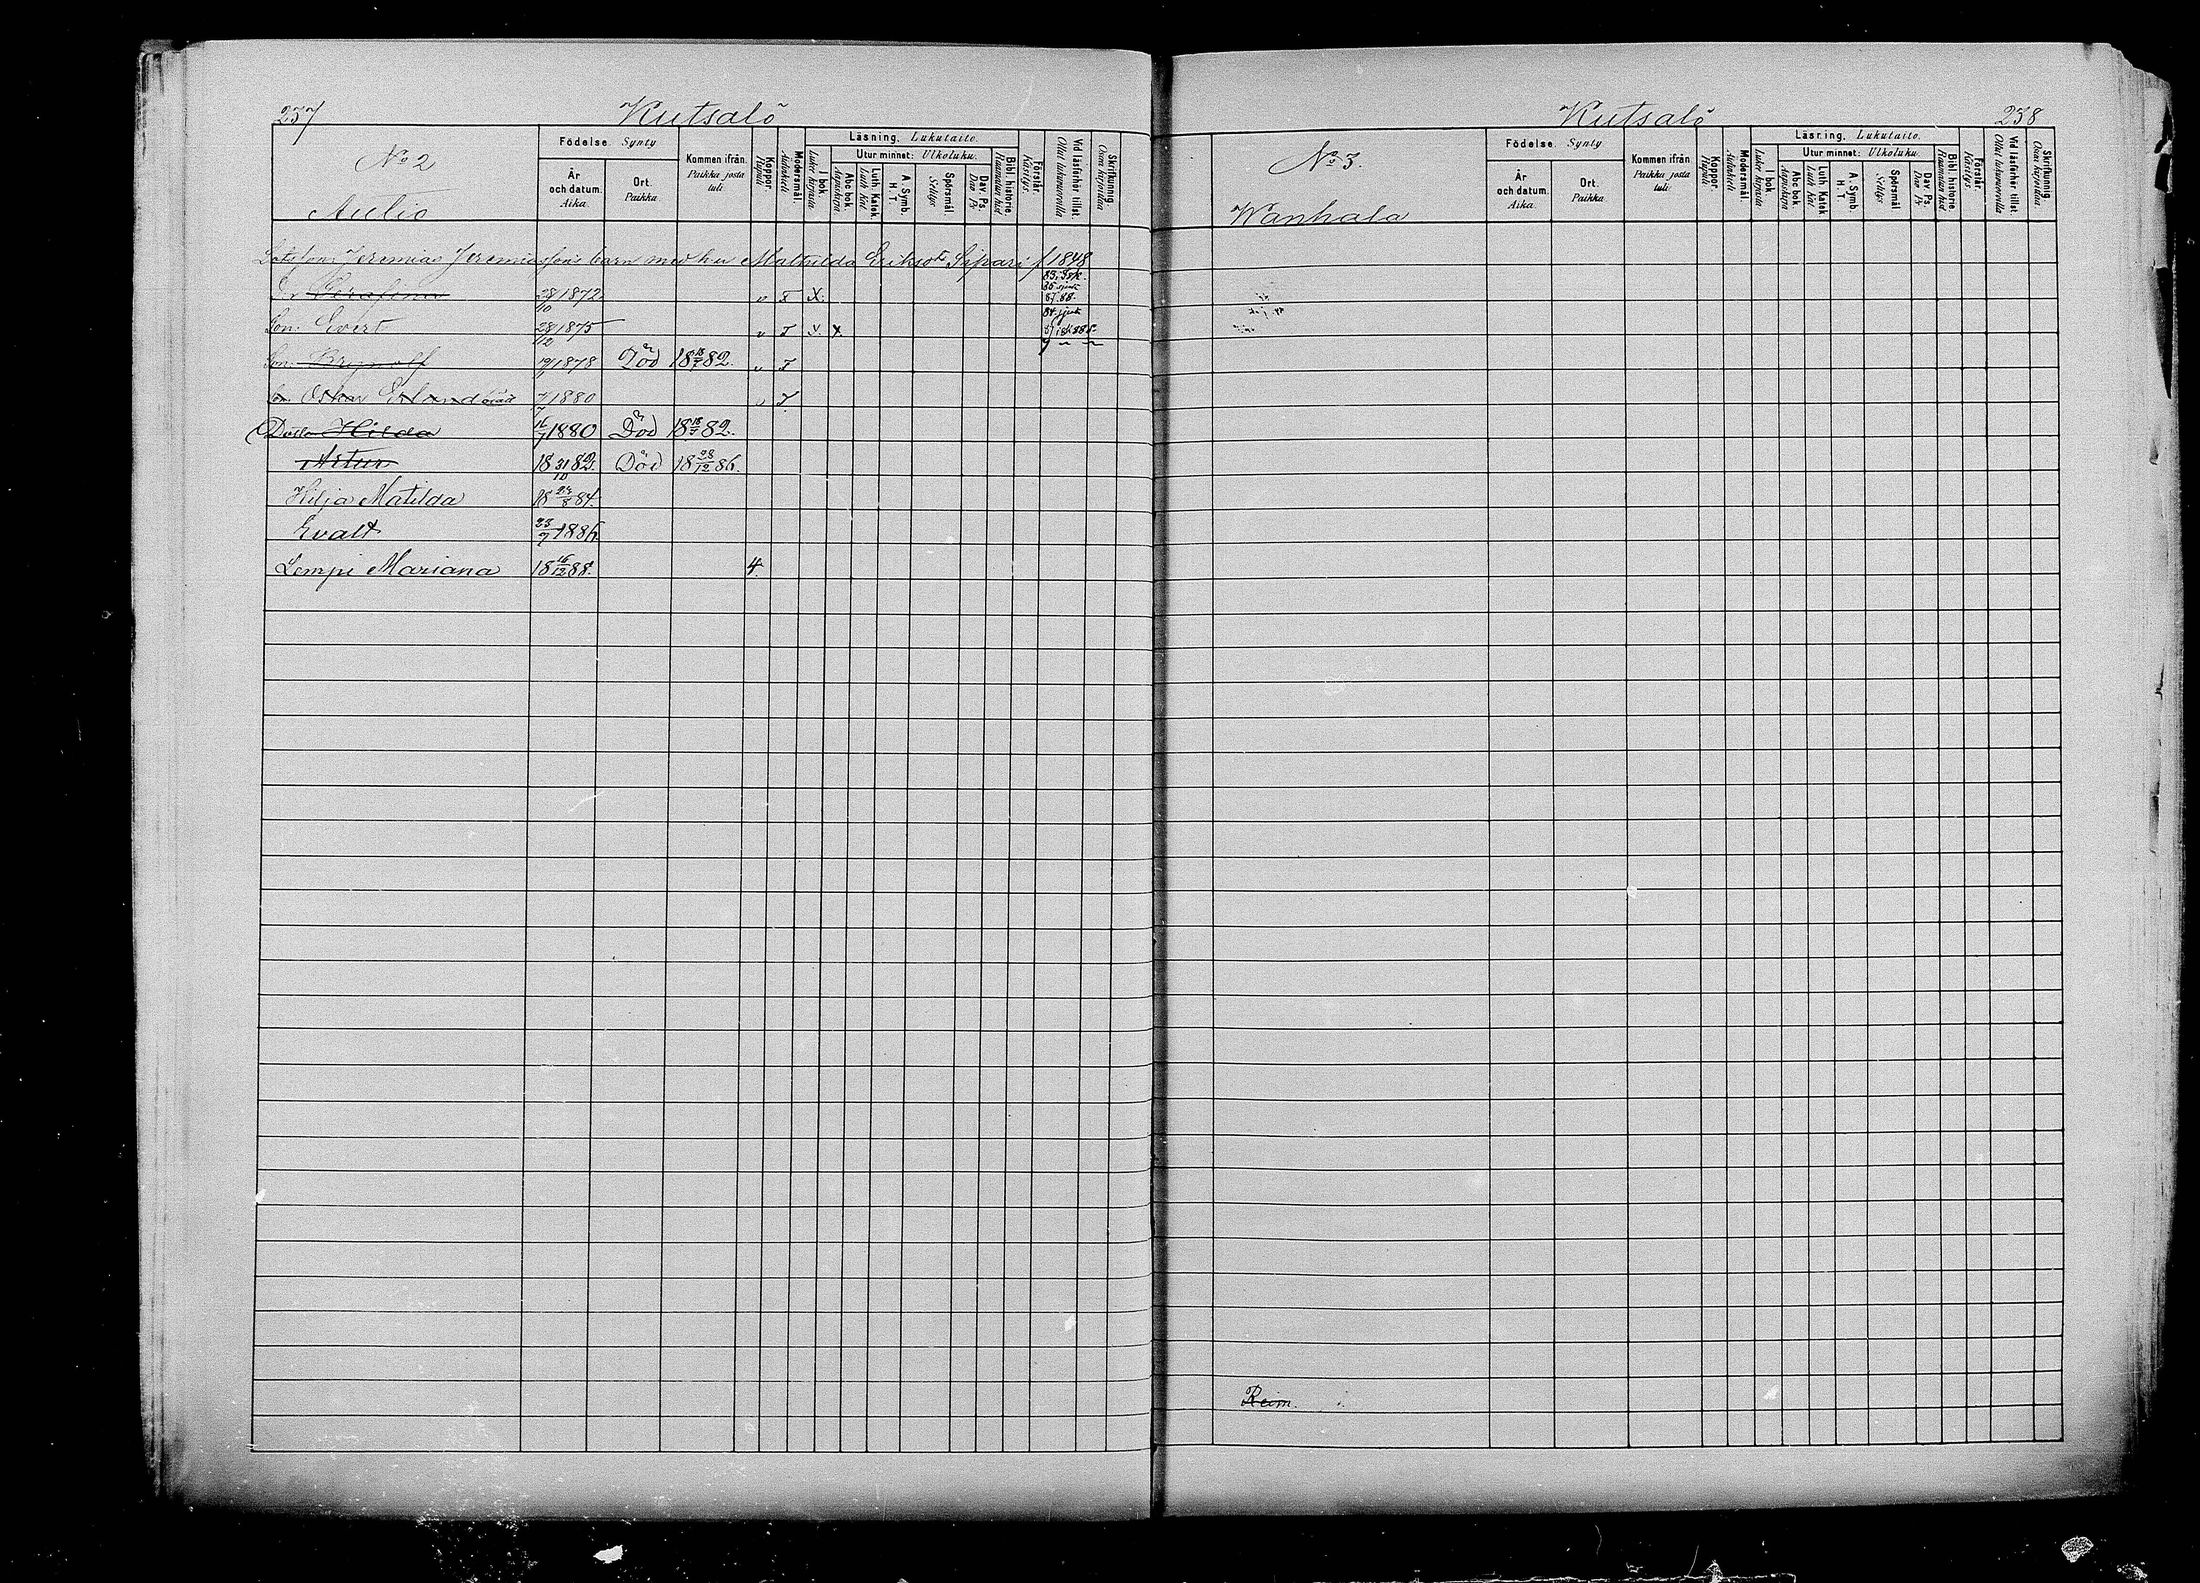 237 Kutsalö
No 2
Aulio
Födelse. Synty
År och datum. Aika.
Ort. Paikka.
Kommen ifrån. Paikka josta tuli
Koppor. Rupuli
Modersmål. Äidinkieli
Läsning. Lukutaito.
I bok. Lukee kirjasta
Utur minnet: Ulkoluku.
Abc bok. Aapiskirja
Luth. Katek. Luth Kat
A. Symb. H. T.
Spörsmål. Selitys
Dav. Ps. Dav. Ps
Bibl. historie. Raamatun hist
Förstår. Käsitys.
Vid läsförhör tillst. Ollut lukuvuorolla
Skrifkunnig. Osaa kirjoittaa
Jeremias Jeremiassons barn med hu Mathilda Eriksdr Sipari f 1848
Dr Serafina 28/10 1872 v F X.
Son Evert 28/12 1875 v F X. X.
Son Brynolf 19/1 1878 Död 18 18/7 82. v F
Son Oskar Erland 1880 v F
Dottr Hilda 16/7 1880 Död 18 18/7 82.
Artur 18 31/10 82. Död 18 28/12 86.
Hilja Matilda 18 24/8 84.
Evalt 23/7 1886.
Lempi Mariana 18 16/12 88. 4.
Kutsalö 238
No 3.
Wanhala
Födelse. Synty
År och datum. Aika.
Ort. Paikka.
Kommen ifrån. Paikka josta tuli
Koppor. Rupuli
Modersmål. Äidinkieli
Läsning. Lukutaito.
I bok. Lukee kirjasta
Utur minnet: Ulkoluku.
Abc bok. Aapiskirja
Luth. Katek. Luth Kat
A. Symb. H. T
Spörsmål Selitys
Dav. Ps. Dav. Ps
Bibl. historie. Raamatun hist
Förstår. Käsitys
Vid läsförhör tillst. Ollut lukuvuorolla
Skrifkunnig. Osaa kirjoittaa
Reim.